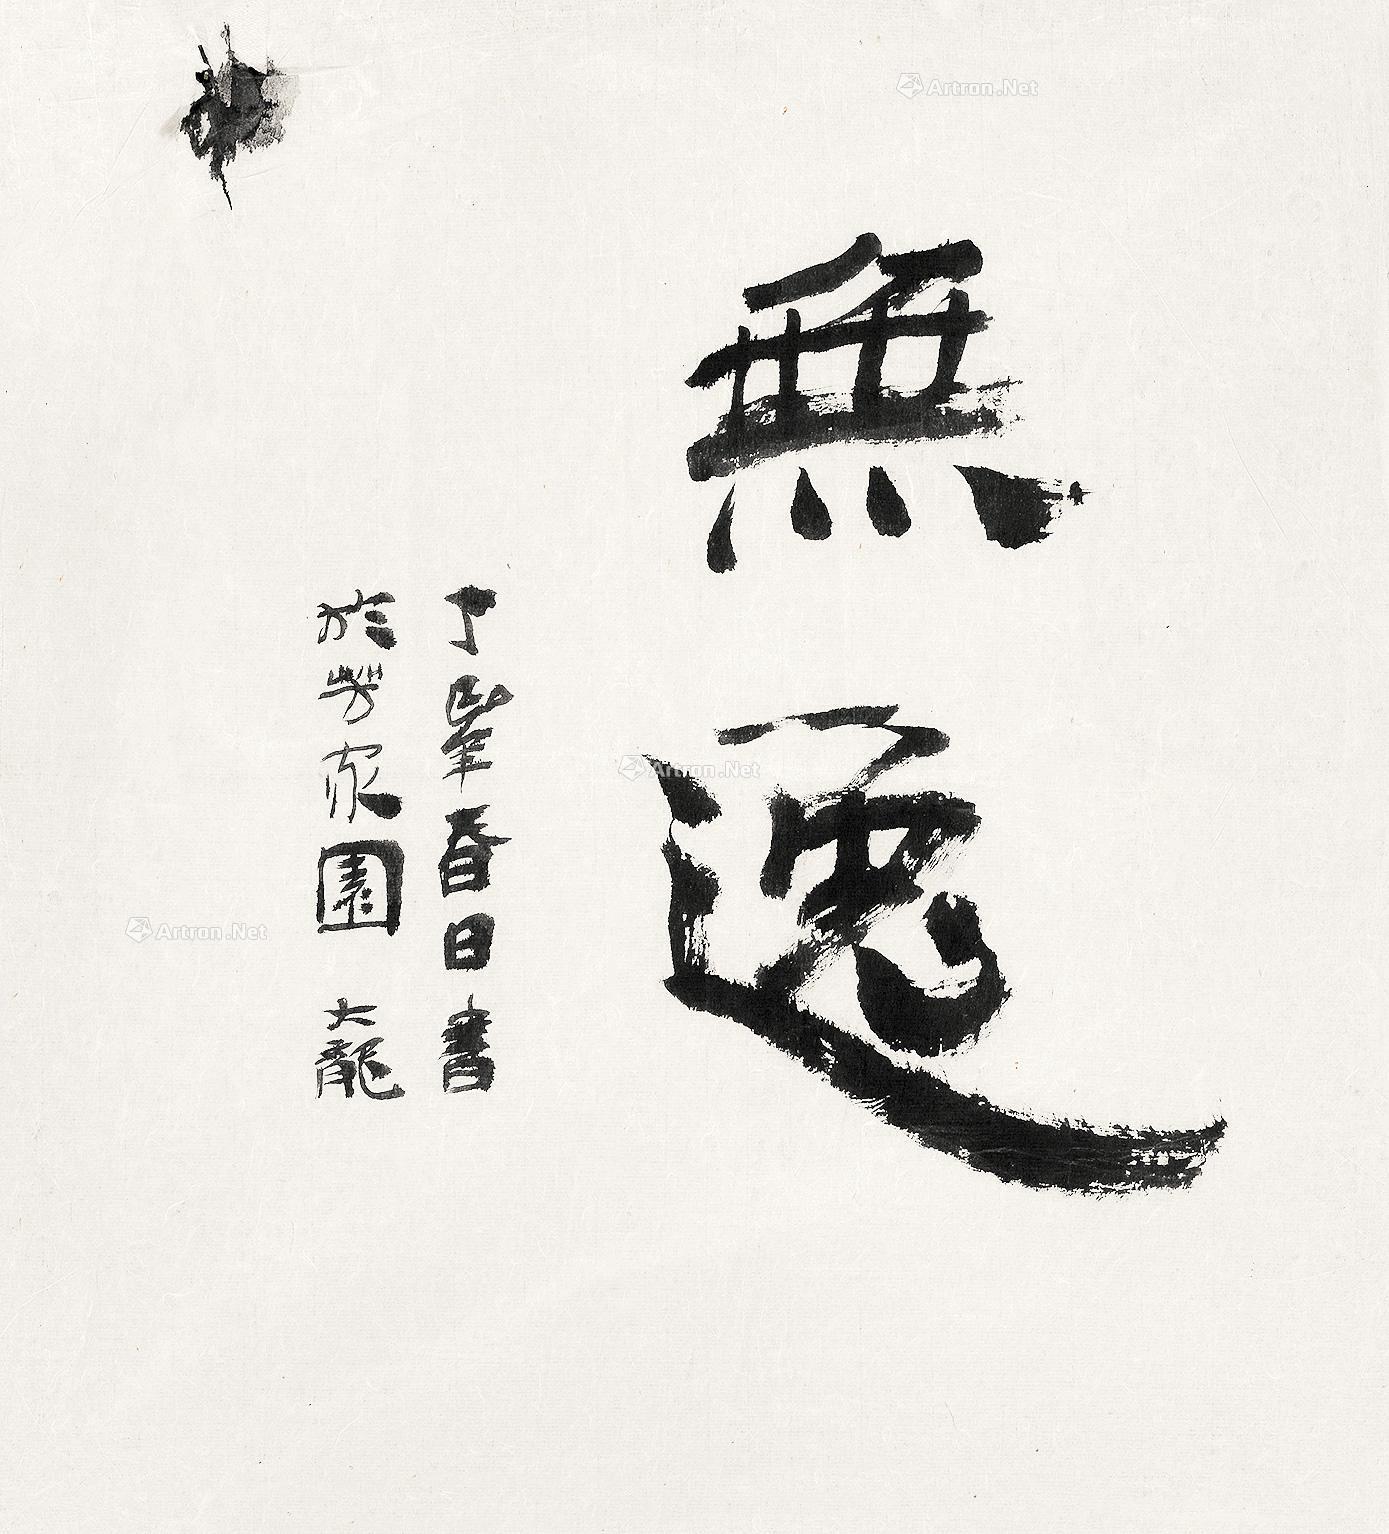 無逸
丁春日書
於芳家園 大龍
Artron.Net
Artron.Net
Artron.Net